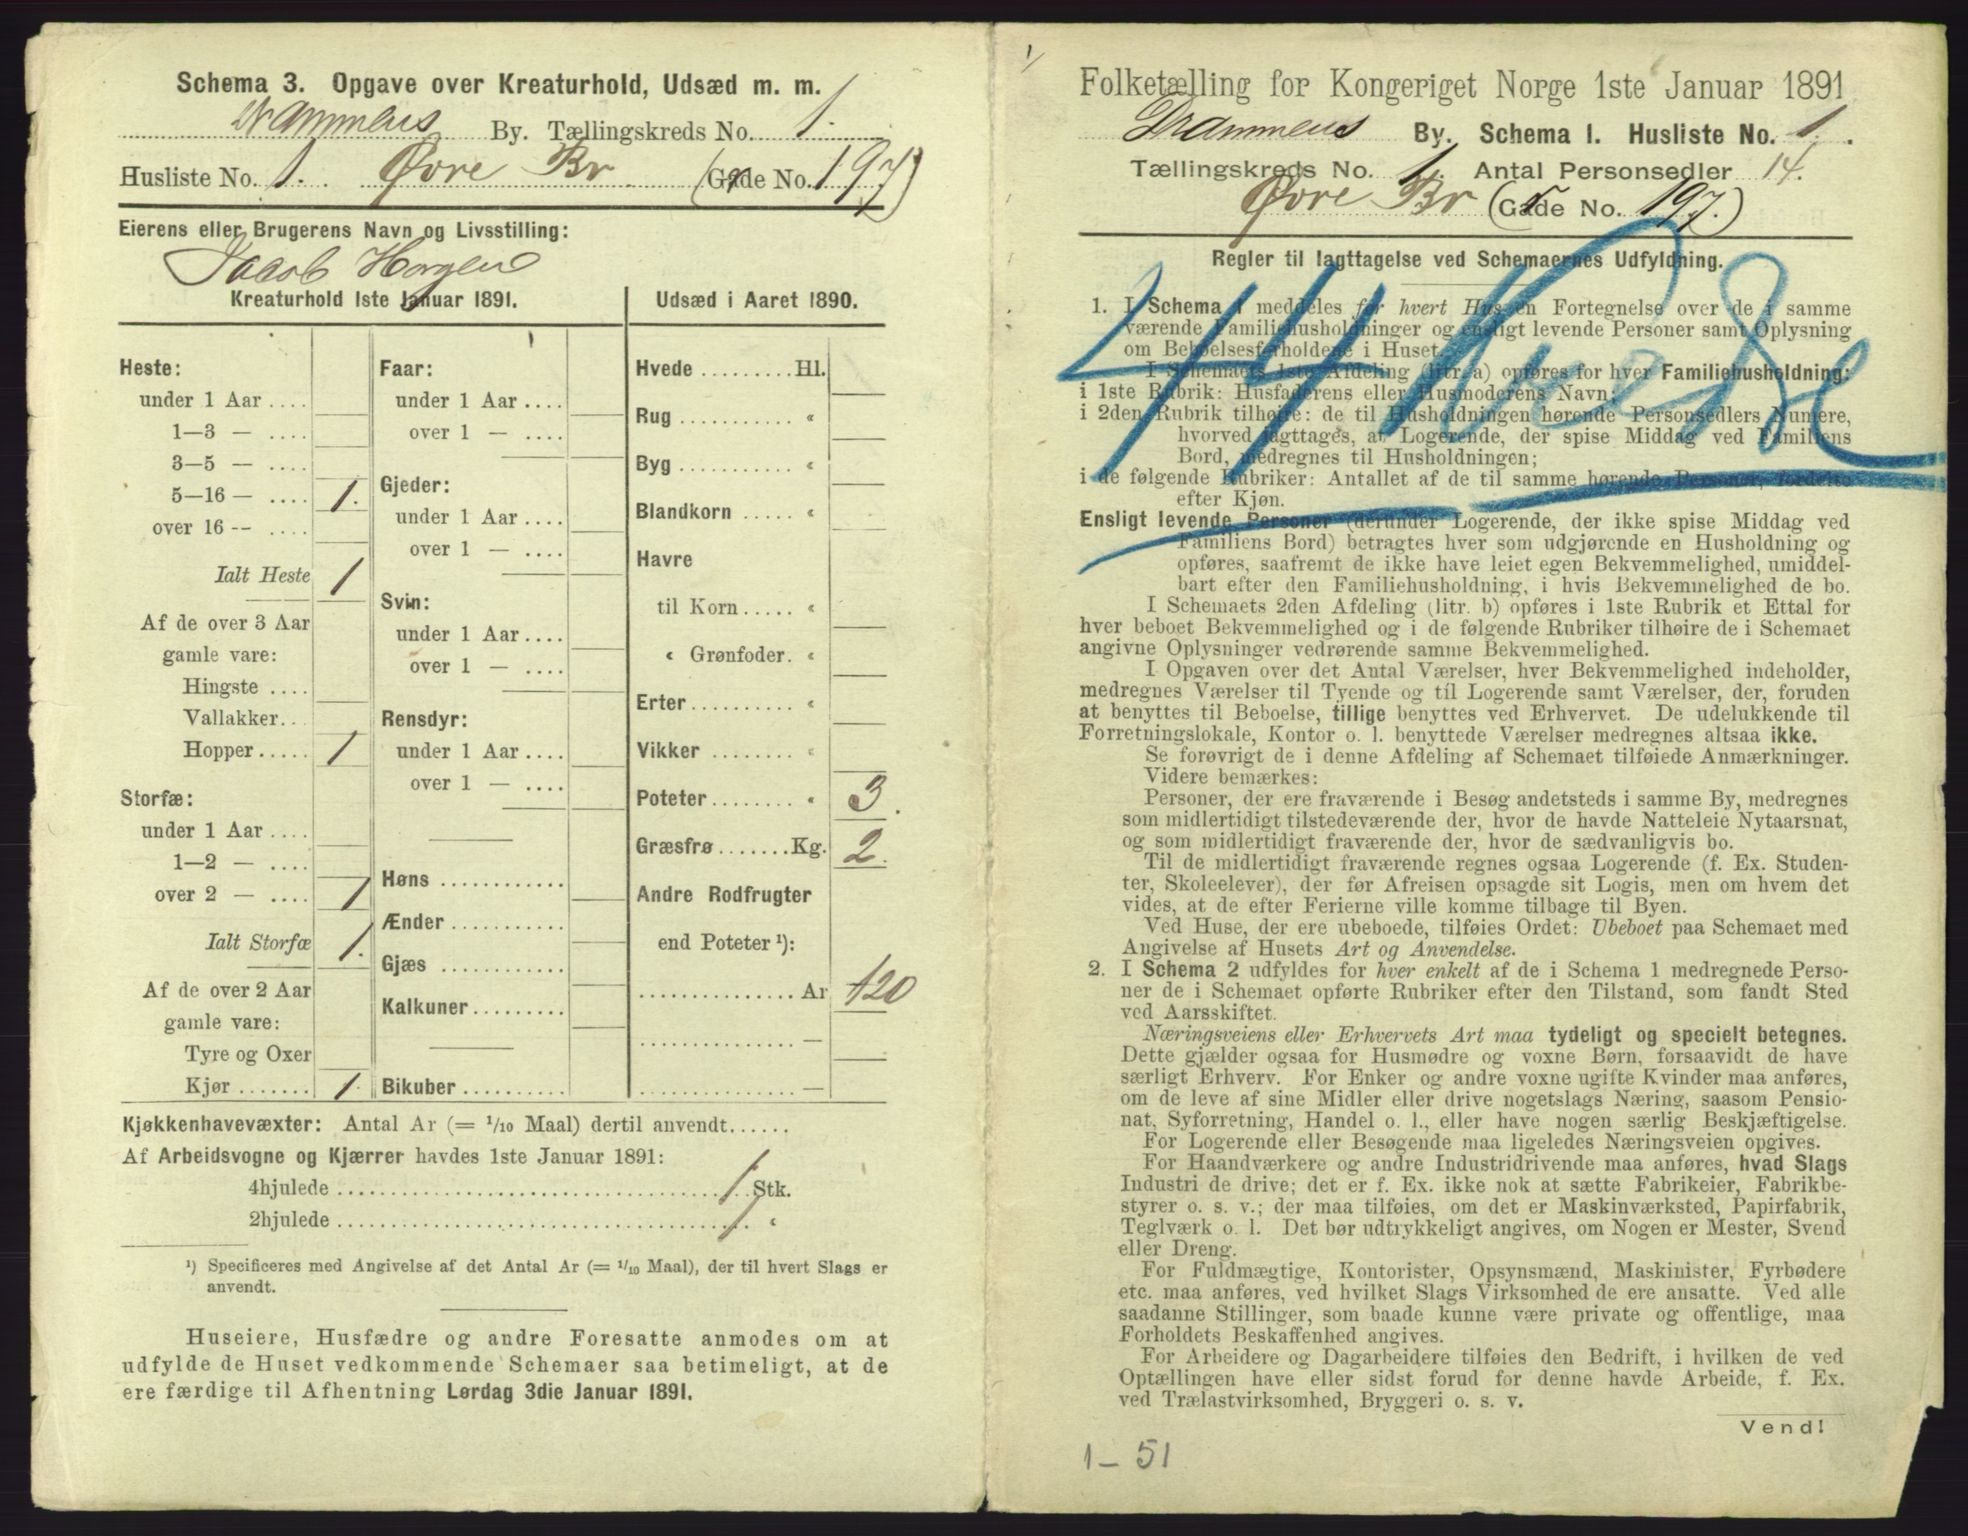 Schema 3. Opgave over Kreaturhold, Udsæd m. m.
Drammens By. Tællingskreds No. 1.
Husliste No. 1. Øvre Br (Gade No. 197)
Eierens eller Brugerens Navn og Livsstilling:
Jacob Horgen
Kreaturhold 1ste Januar 1891.
Heste:
under 1 Aar ....
1—3 — ....
3—5 — ....
5—16 — .... 1.
over 16 -- ....
Ialt Heste 1
Af de over 3 Aar
gamle vare:
Hingste ....
Vallakker..
Hopper..... 1
Storfæ:
under 1 Aar ....
1—2 — ....
over 2 — .... 1
Ialt Storfæ 1.
Af de over 2 Aar
gamle vare:
Tyre og Oxer
Kjør ....... 1.
Faar:
under 1 Aar ....
over 1 — ....
Gjeder:
under 1 Aar ....
over 1 — ....
Svin:
under 1 Aar ....
over 1 — ....
Rensdyr:
under 1 Aar ....
over 1 — ....
Høns ............
Ænder ...........
Gjæs ............
Kalkuner.........
Bikuber ..........
Udsæd i Aaret 1890.
Hvede .........Hl.
Rug ............ «
Byg ............ «
Blandkorn ..... «
Havre
til Korn..... «
« Grønfoder. «
Erter.......... «
Vikker ........ «
Poteter........ « 3.
Græsfrø .......Kg. 2.
Andre Rodfrugter
end Poteter ¹):
............... Ar 120
............... —
............... —
Kjøkkenhavevæxter: Antal Ar (= 1/10 Maal) dertil anvendt......
Af Arbeidsvogne og Kjærrer havdes 1ste Januar 1891:
4hjulede ........................................ 1 Stk.
2hjulede ........................................ 1 «
¹) Specificeres med Angivelse af det Antal Ar (= 1/10 Maal), der til hvert Slags er
anvendt.
Huseiere, Husfædre og andre Foresatte anmodes om at
udfylde de Huset vedkommende Schemaer saa betimeligt, at de
ere færdige til Afhentning Lørdag 3die Januar 1891.
Folketælling for Kongeriget Norge 1ste Januar 1891
Drammens By. Schema 1. Husliste No. 1.
Tællingskreds No. 1. Antal Personsedler 14.
Øvre Br (Gade No. 197.)
Regler til Iagttagelse ved Schemaernes Udfyldning.
1. I Schema 1 meddeles for hvert Hus en Fortegnelse over de i samme
værende Familiehusholdninger og ensligt levende Personer samt Oplysning
om Beboelsesforholdene i Huset.
I Schemaets 1ste Afdeling (litr. a) opføres for hver Familiehusholdning:
i 1ste Rubrik: Husfaderens eller Husmoderens Navn;
i 2den Rubrik tilhøire: de til Husholdningen hørende Personsedlers Numere,
hvorved iagttages, at Logerende, der spise Middag ved Familiens
Bord, medregnes til Husholdningen;
i de følgende Rubriker: Antallet af de til samme hørende Personer, fordelte
efter Kjøn.
Ensligt levende Personer (derunder Logerende, der ikke spise Middag ved
Familiens Bord) betragtes hver som udgjørende en Husholdning og
opføres, saafremt de ikke have leiet egen Bekvemmelighed, umiddel-
bart efter den Familiehusholdning, i hvis Bekvemmelighed de bo.
I Schemaets 2den Afdeling (litr. b) opføres i 1ste Rubrik et Ettal for
hver beboet Bekvemmelighed og i de følgende Rubriker tilhøire de i Schemaet
angivne Oplysninger vedrørende samme Bekvemmelighed.
I Opgaven over det Antal Værelser, hver Bekvemmelighed indeholder,
medregnes Værelser til Tyende og til Logerende samt Værelser, der, foruden
at benyttes til Beboelse, tillige benyttes ved Erhvervet. De udelukkende til
Forretningslokale, Kontor o. l. benyttede Værelser medregnes altsaa ikke.
Se forøvrigt de i denne Afdeling af Schemaet tilføiede Anmærkninger.
Videre bemærkes:
Personer, der ere fraværende i Besøg andetsteds i samme By, medregnes
som midlertidigt tilstedeværende der, hvor de havde Natteleie Nytaarsnat,
og som midlertidigt fraværende der, hvor de sædvanligvis bo.
Til de midlertidigt fraværende regnes ogsaa Logerende (f. Ex. Studen-
ter, Skoleelever), der før Afreisen opsagde sit Logis, men om hvem det
vides, at de efter Ferierne ville komme tilbage til Byen.
Ved Huse, der ere ubeboede, tilføies Ordet: Ubeboet paa Schemaet med
Angivelse af Husets Art og Anvendelse.
2. I Schema 2 udfyldes for hver enkelt af de i Schema 1 medregnede Perso-
ner de i Schemaet opførte Rubriker efter den Tilstand, som fandt Sted
ved Aarsskiftet.
Næringsveiens eller Erhvervets Art maa tydeligt og specielt betegnes.
Dette gjælder ogsaa for Husmødre og voxne Børn, forsaavidt de have
særligt Erhverv. For Enker og andre voxne ugifte Kvinder maa anføres,
om de leve af sine Midler eller drive nogetslags Næring, saasom Pensio-
nat, Syforretning, Handel o. l., eller have nogen særlig Beskjæftigelse.
For Logerende eller Besøgende maa ligeledes Næringsveien opgives.
For Haandværkere og andre Industridrivende maa anføres, hvad Slags
Industri de drive; det er f. Ex. ikke nok at sætte Fabrikeier, Fabrikbe-
styrer o. s. v.; der maa tilføies, om det er Maskinværksted, Papirfabrik,
Teglværk o. l. Det bør udtrykkeligt angives, om Nogen er Mester, Svend
eller Dreng.
For Fuldmægtige, Kontorister, Opsynsmænd, Maskinister, Fyrbødere
etc. maa anføres, ved hvilket Slags Virksomhed de ere ansatte. Ved alle
saadanne Stillinger, som baade kunne være private og offentlige, maa
Forholdets Beskaffenhed angives.
For Arbeidere og Dagarbeidere tilføies den Bedrift, i hvilken de ved
Optællingen have eller sidst forud for denne havde Arbeide, f. Ex.
ved Trælastvirksomhed, Bryggeri o. s. v.
Vend!
1 – 51